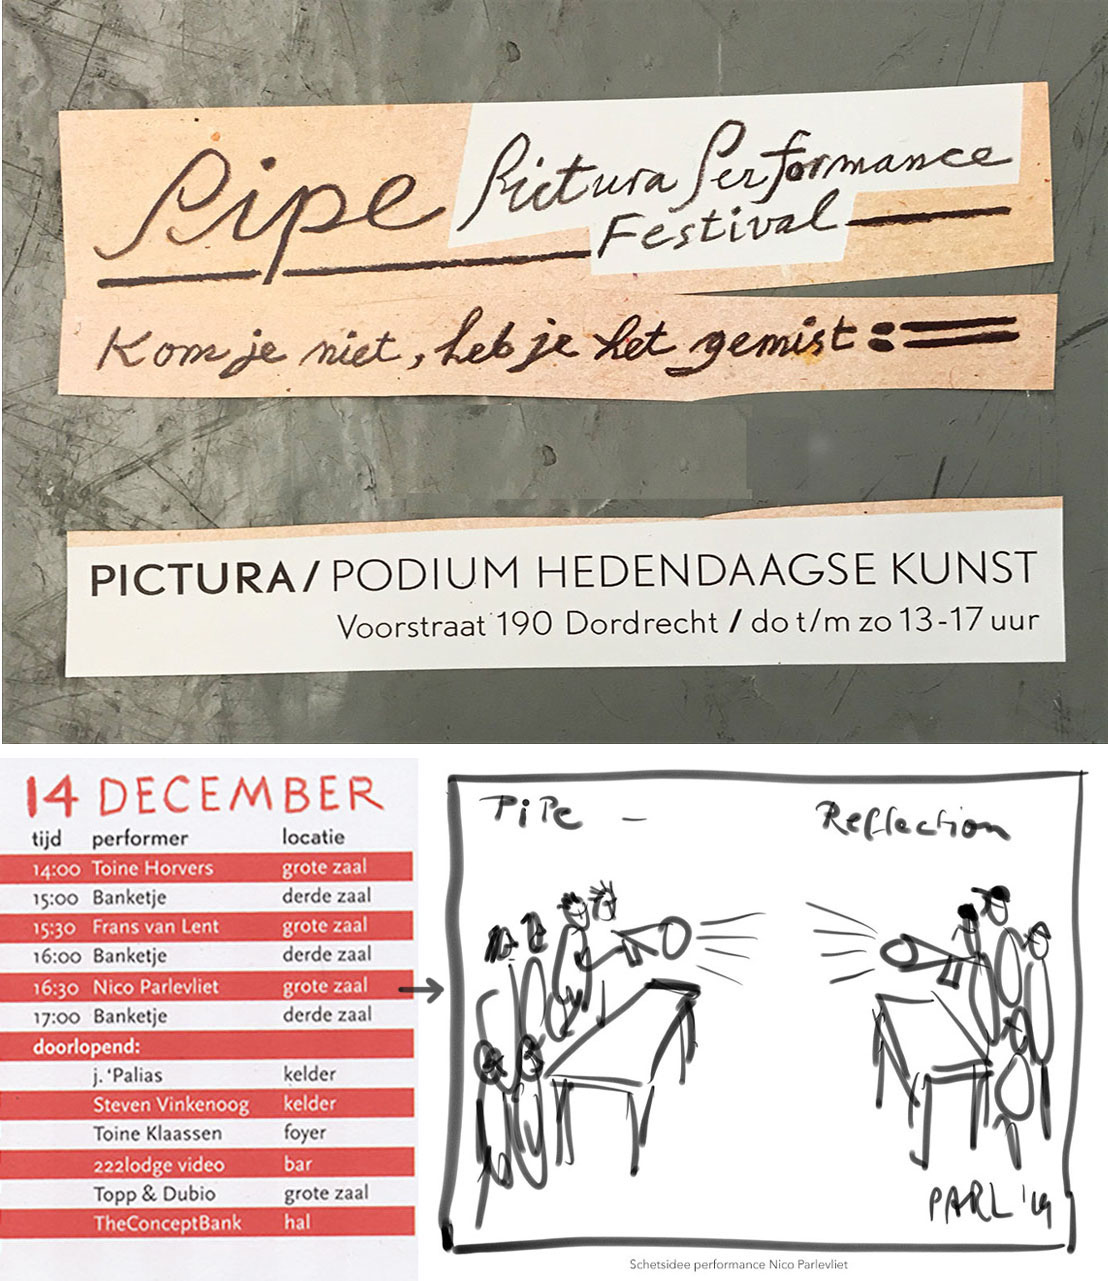 Pipe Pictura Performance
Festival
Kom je niet, heb je het gemist:
PICTURA / PODIUM HEDENDAAGSE KUNST
Voorstraat 190 Dordrecht / do t/m zo 13-17 uur
14 DECEMBER
tijd performer locatie
14:00 Toine Horvers grote zaal
15:00 Banketje derde zaal
15:30 Frans van Lent grote zaal
16:00 Banketje derde zaal
16:30 Nico Parlevliet grote zaal
17:00 Banketje derde zaal
doorlopend:
j. ‘Palias kelder
Steven Vinkenoog kelder
Toine Klaassen foyer
222lodge video bar
Topp & Dubio grote zaal
TheConceptBank hal
PiPe – Reflection
PARL '19
Schetsidee performance Nico Parlevliet